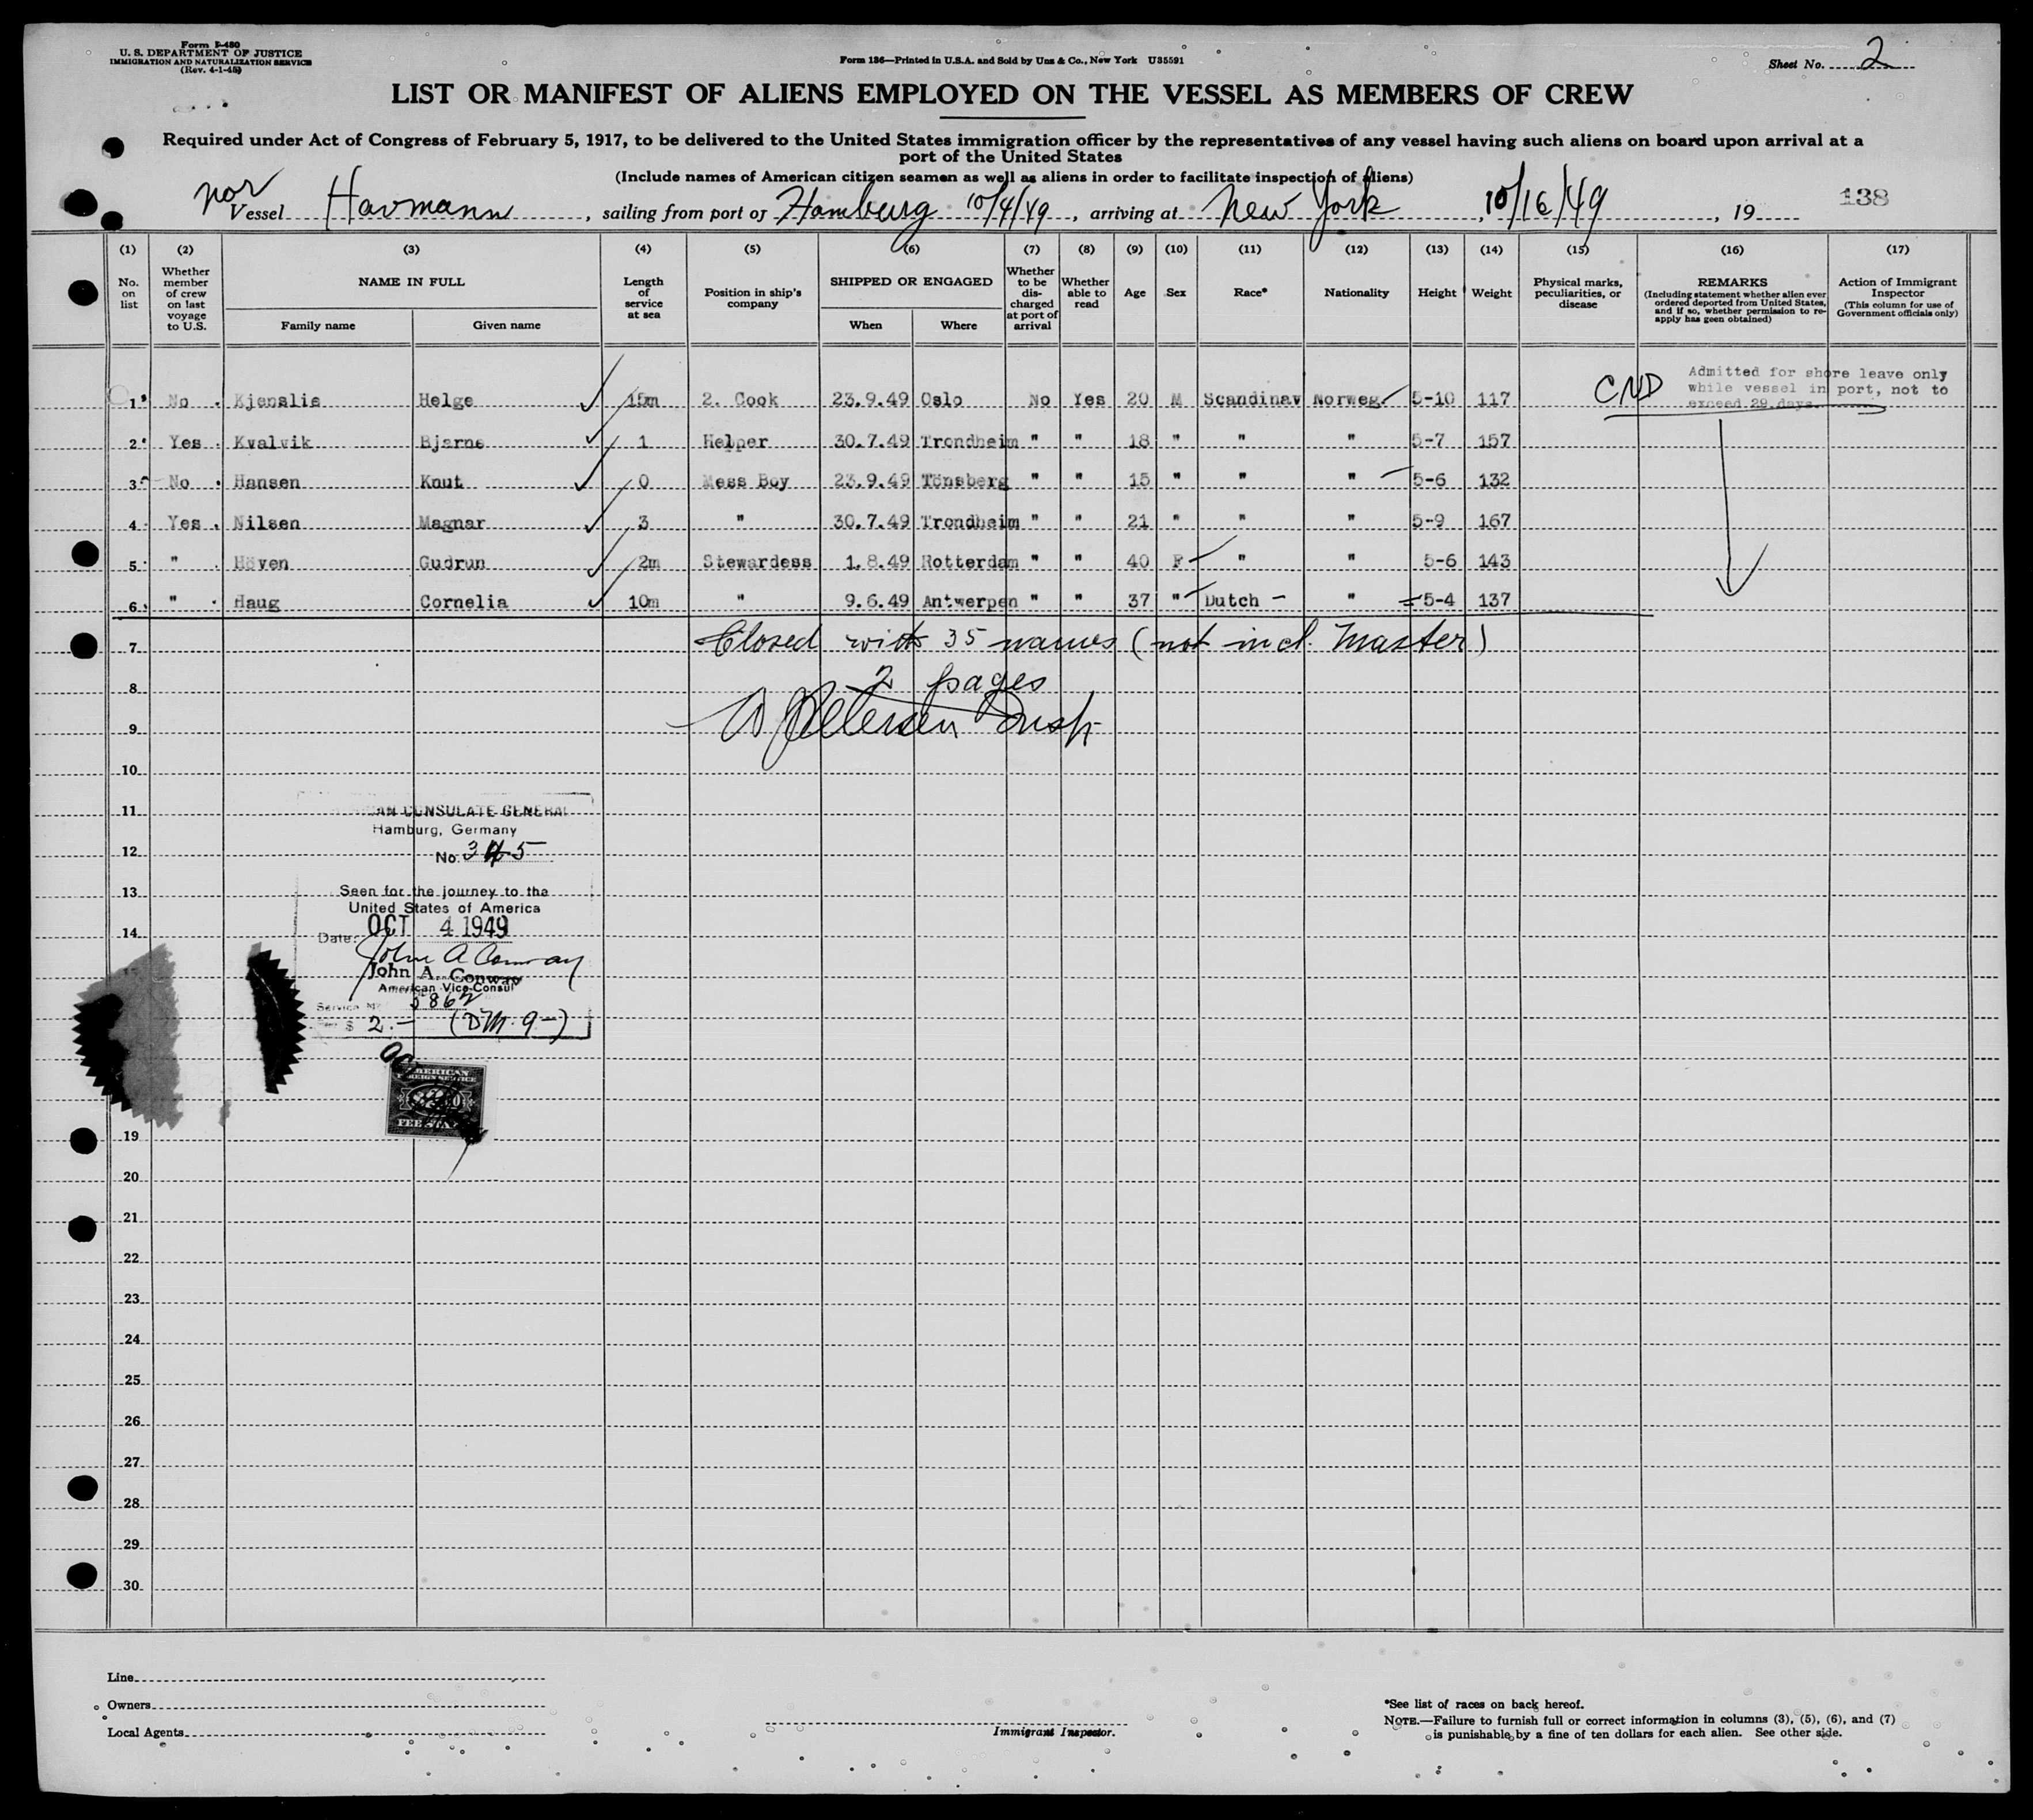 Form I-480
U. S. DEPARTMENT OF JUSTICE
IMMIGRATION AND NATURALIZATION SERVICE
(Rev. 4-1-45)
Form 136—Printed in U.S.A. and Sold by Unz & Co., New York U35591
Sheet No. 2
LIST OR MANIFEST OF ALIENS EMPLOYED ON THE VESSEL AS MEMBERS OF CREW
Required under Act of Congress of February 5, 1917, to be delivered to the United States immigration officer by the representatives of any vessel having such aliens on board upon arrival at a
port of the United States
(Include names of American citizen seamen as well as aliens in order to facilitate inspection of aliens)
nor
Vessel Havmann, sailing from port of Hamburg 10/4/49, arriving at New York, 10/16/49, 19 138
(1) (2) (3) (4) (5) (6) (7) (8) (9) (10) (11) (12) (13) (14) (15) (16) (17)
No. on list
Whether member of crew on last voyage to U.S.
NAME IN FULL
Family name
Given name
Length of service at sea
Position in ship's company
SHIPPED OR ENGAGED
When
Where
Whether to be discharged at port of arrival
Whether able to read
Age
Sex
Race*
Nationality
Height
Weight
Physical marks, peculiarities, or disease
REMARKS
(Including statement whether alien ever ordered deported from United States, and if so, whether permission to re-apply has geen obtained)
Action of Immigrant Inspector
(This column for use of Government officials only)
Admitted for shore leave only
while vessel in port, not to
exceed 29 days
CND
1 No Kjenslie Helge 15m 2. Cook 23.9.49 Oslo No Yes 20 M Scandinav Norweg 5-10 117
2 Yes Kvalvik Bjarne 1 Helper 30.7.49 Trondheim " " 18 " " " 5-7 157
3 No Hansen Knut 0 Mess Boy 23.9.49 Tönsberg " " 15 " " " 5-6 132
4 Yes Nilsen Magnar 3 " 30.7.49 Trondheim " " 21 " " " 5-9 167
5 " Höven Gudrun 2m Stewardess 1.8.49 Rotterdam " " 40 F " " 5-6 143
6 " Haug Cornelia 10m " 9.6.49 Antwerpen " " 37 " Dutch " 5-4 137
7 Closed with 35 names (not incl. Master)
8 2 pages
9 Petersen Insp
10
11
AN CONSULATE GENERAL
Hamburg, Germany
12
No. 345
13
Seen for the journey to the
United States of America
14
Date: OCT 4 1949
John A Conway
John A. Conway
American Vice-Consul
Service No. 5862
$ 2.— (DM. 9—)
AMERICAN
FOREIGN SERVICE
FEE STA
19
20
21
22
23
24
25
26
27
28
29
30
Line
Owners
Local Agents
Immigrant Inspector.
*See list of races on back hereof.
NOTE.—Failure to furnish full or correct information in columns (3), (5), (6), and (7)
is punishable by a fine of ten dollars for each alien. See other side.